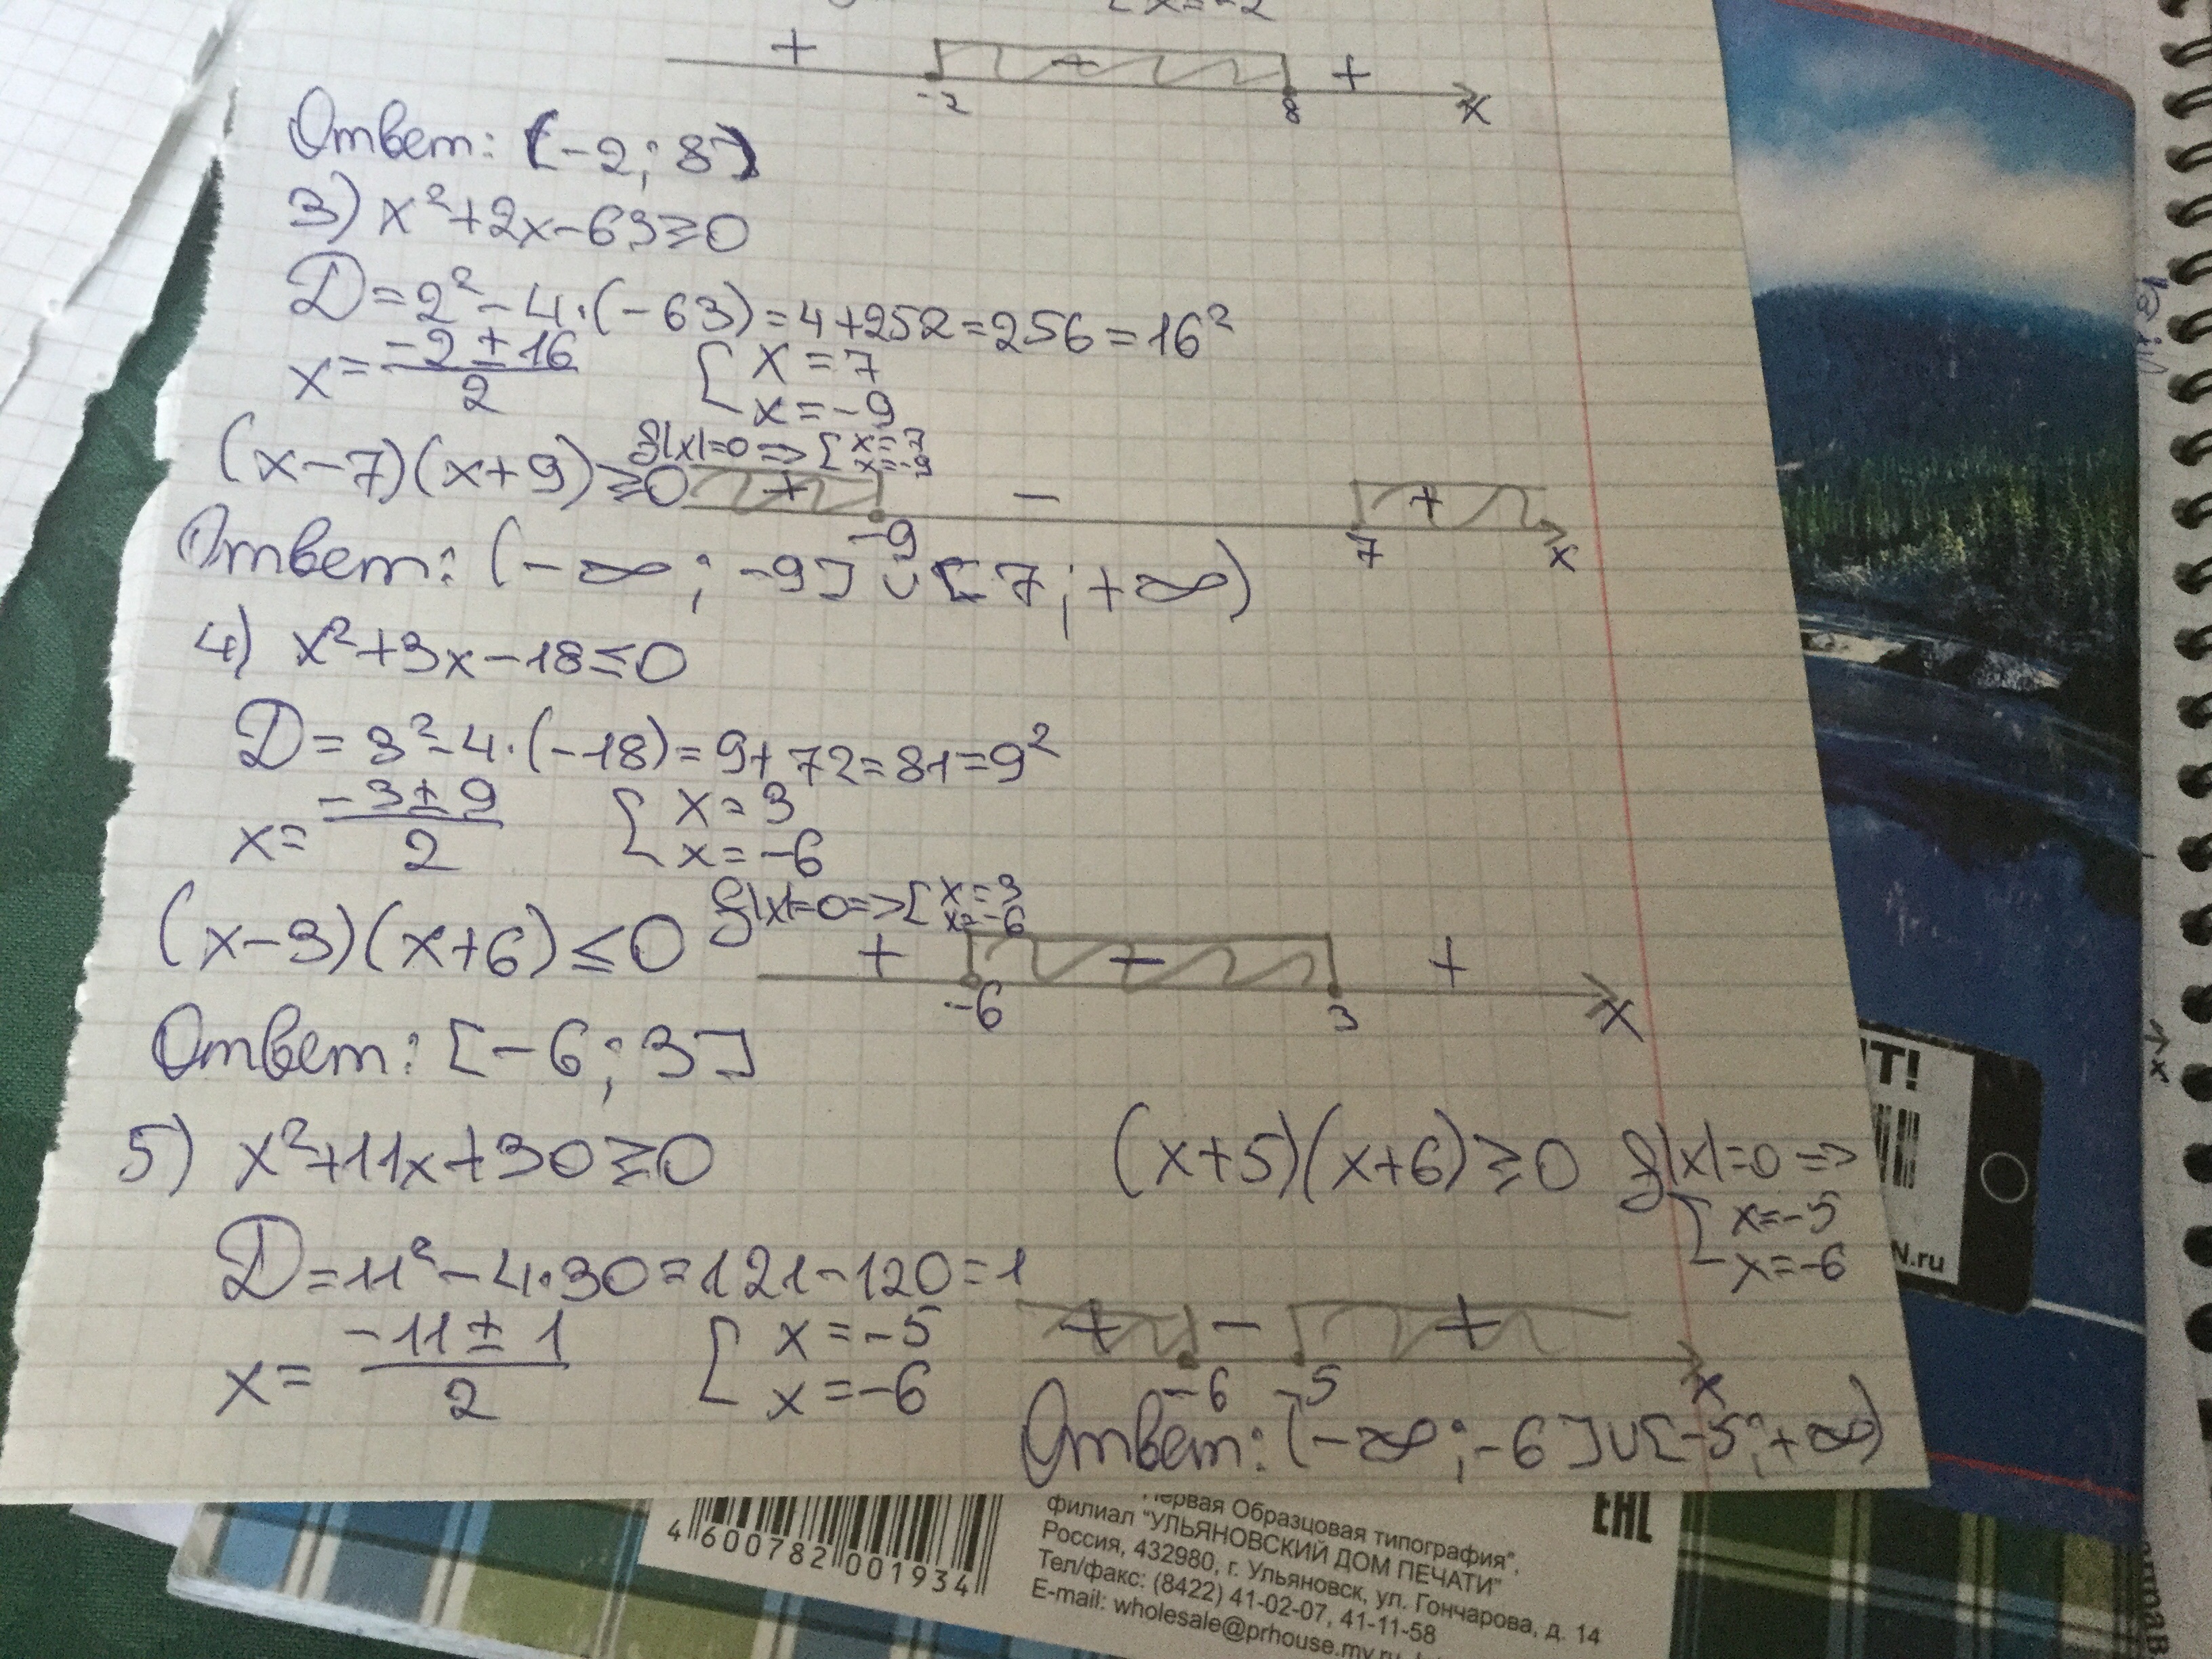 [ x=-2
+ − +
-2 8 x
Ответ: [-2; 8]
3) x²+2x-63≥0
D=2²-4·(-63)=4+252=256=16²
x= (-2±16)/2 [ x=7
x=-9
f(x)=0=>[ x=7
x=-9
(x-7)(x+9)≥0 + − +
-9 7 x
Ответ: (-∞; -9]∪[7; +∞)
4) x²+3x-18≤0
D=3²-4·(-18)=9+72=81=9²
x= (-3±9)/2 [ x=3
x=-6
f(x)=0=>[ x=3
x=-6
(x-3)(x+6)≤0 + − +
-6 3 x
Ответ: [-6; 3]
5) x²+11x+30≥0
D=11²-4·30=121-120=1
x= (-11±1)/2 [ x=-5
x=-6
(x+5)(x+6)≥0 f(x)=0=>
[ x=-5
x=-6
+ − +
-6 -5 x
Ответ: (-∞; -6]∪[-5; +∞)
T!
N.ru
4 600782 001934
Первая Образцовая типография",
филиал "УЛЬЯНОВСКИЙ ДОМ ПЕЧАТИ"
Россия, 432980, г. Ульяновск, ул. Гончарова, д. 14
Тел/факс: (8422) 41-02-07, 41-11-58
E-mail: wholesale@prhouse.mv.ru
EAC